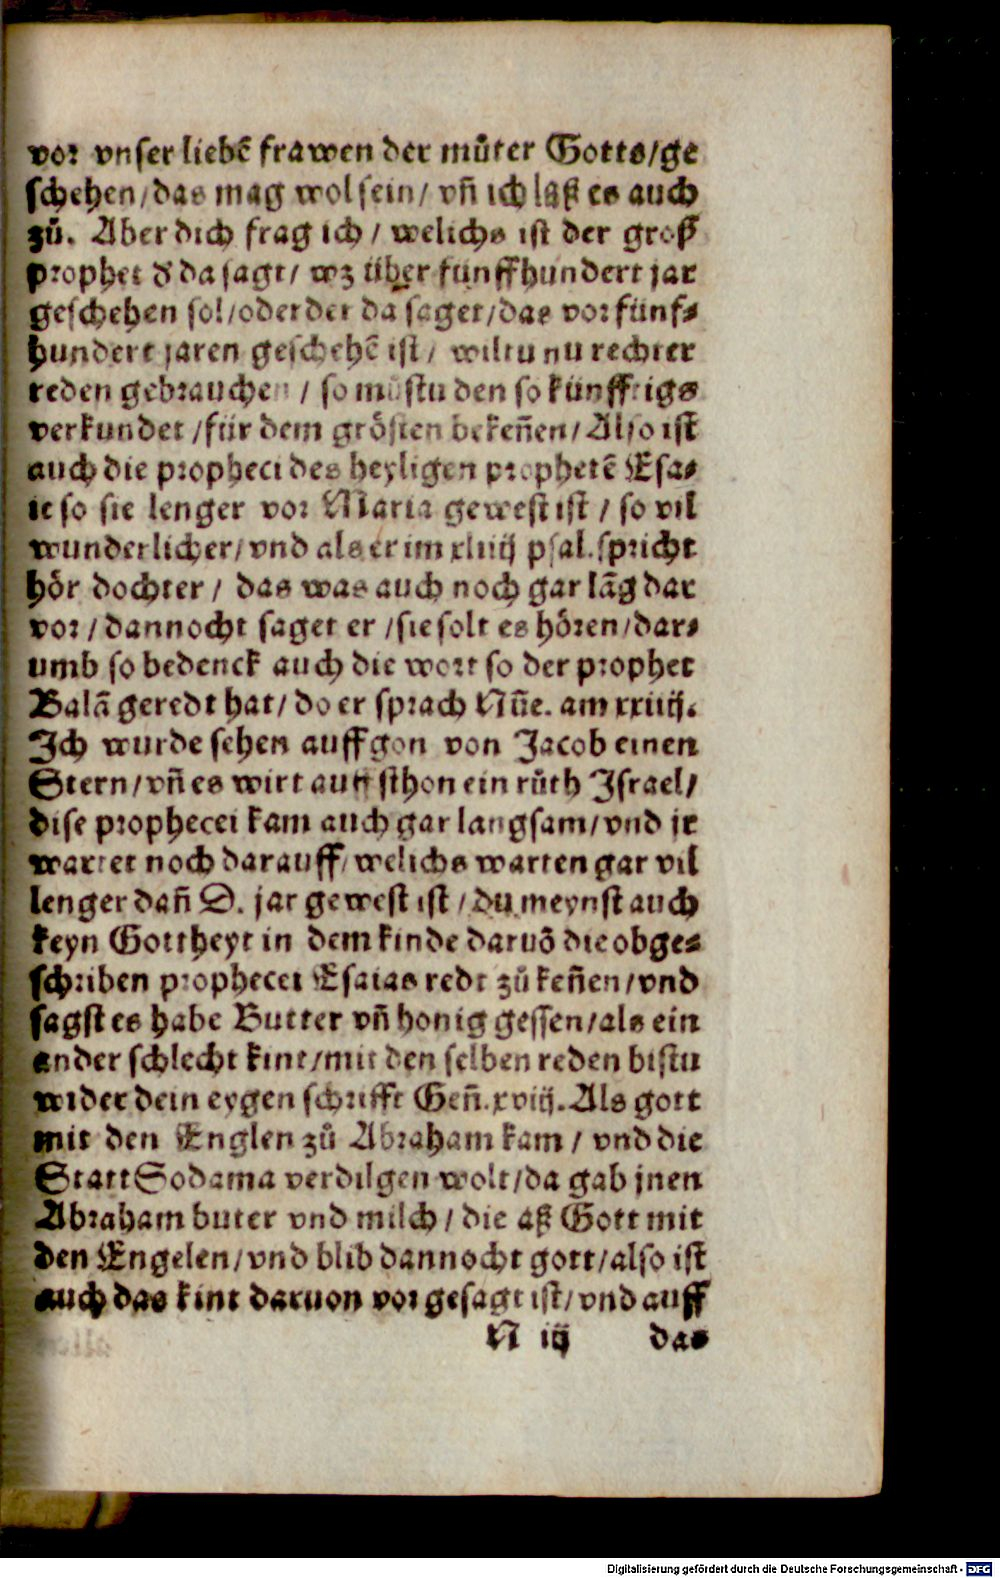 vor vnser liebẽ frawen der můter Gotts/ge
schehen/das mag wol sein/ vñ ich laß es auch
zů. Aber dich frag ich / welichs ist der groß
prophet d' da sagt/ wz über fünffhundert jar
geschehen sol/oder der da saget/das vor fünf⸗
hundert jaren geschehẽ ist/ wiltu nu rechter
reden gebrauchen / so můstu den so künfftigs
verkundet /für dem grösten bekeñen/Also ist
auch die propheci des heyligen prophetẽ Esa⸗
ie so sie lenger vor Maria gewest ist / so vil
wunderlicher/vnd als er im xliiij psal.spricht
hör dochter / das was auch noch gar lãg dar
vor/dannocht saget er /sie solt es hören/dar⸗
umb so bedenck auch die wort so der prophet
Balã geredt hat/ do er sprach Nũe. am xxiiij.
Ich wurde sehen auffgon von Jacob einen
Stern/vñ es wirt auff sthon ein růth Israel/
dise prophecei kam auch gar langsam/vnd jr
wartet noch darauff/welichs warten gar vil
lenger dañ D. jar gewest ist /du meynst auch
keyn Gottheyt in dem kinde daruõ die obge⸗
schriben prophecei Esaias redt zů keñen/vnd
sagst es habe Butter vñ honig gessen/als ein
ander schlecht kint/mit den selben reden bistu
wider dein eygen schrifft Geñ.xviij.Als gott
mit den Englen zů Abraham kam / vnd die
Statt Sodama verdilgen wolt/da gab jnen
Abraham buter vnd milch / die aß Gott mit
den Engelen/vnd blib dannocht gott/also ist
auch das kint daruon vor gesagt ist/vnd auff
N iij das
Digitalisierung gefördert durch die Deutsche Forschungsgemeinschaft - DFG